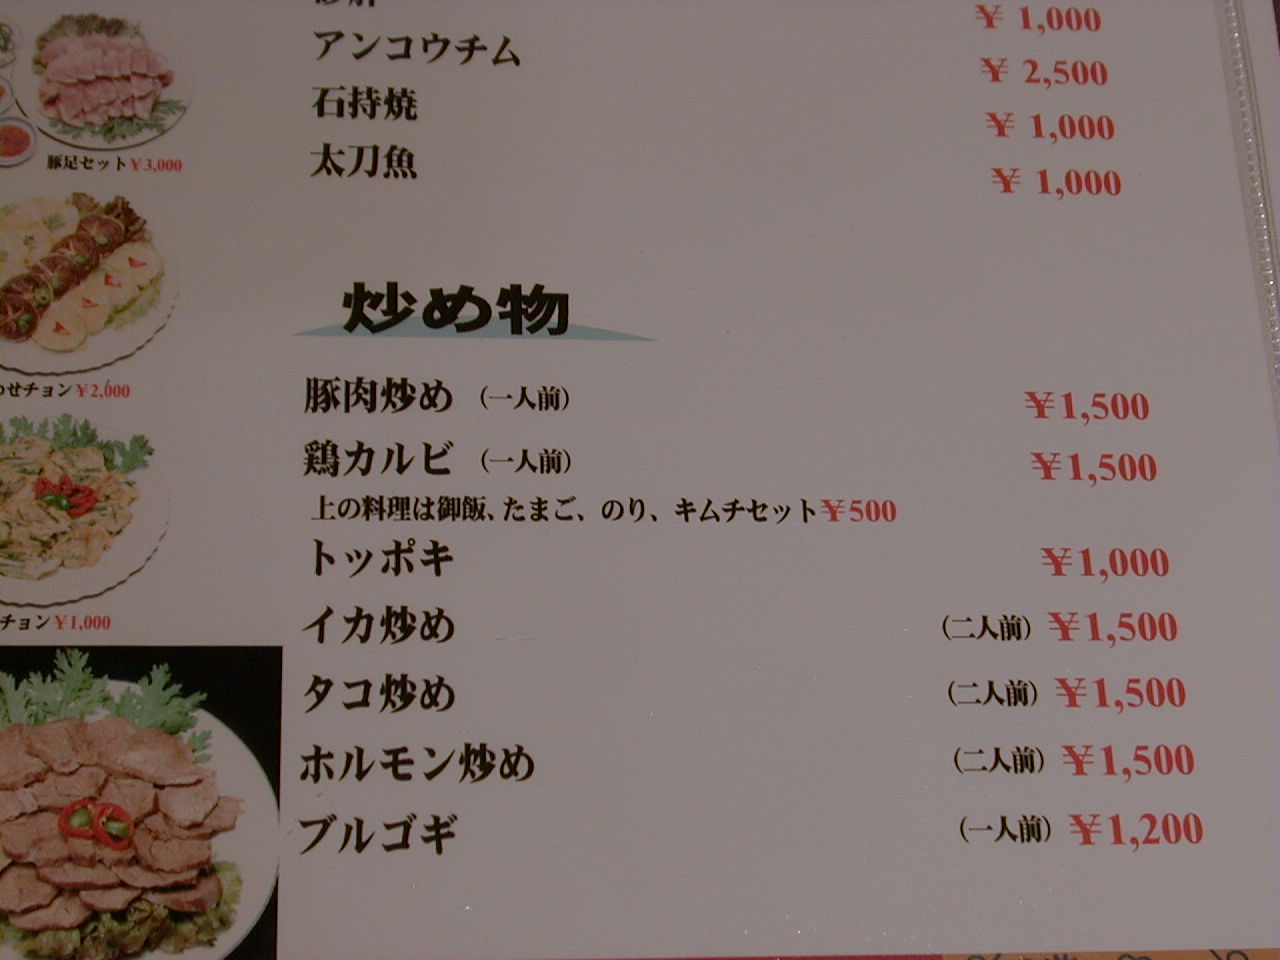 ¥1,000
アンコウチム ¥2,500
石持焼 ¥1,000
太刀魚 ¥1,000
豚足セット¥3,000
せチョン¥2,000
チョン¥1,000
炒め物
豚肉炒め (一人前) ¥1,500
鶏カルビ (一人前) ¥1,500
上の料理は御飯、たまご、のり、キムチセット¥500
トッポキ ¥1,000
イカ炒め (二人前) ¥1,500
タコ炒め (二人前) ¥1,500
ホルモン炒め (二人前) ¥1,500
ブルゴギ (一人前) ¥1,200